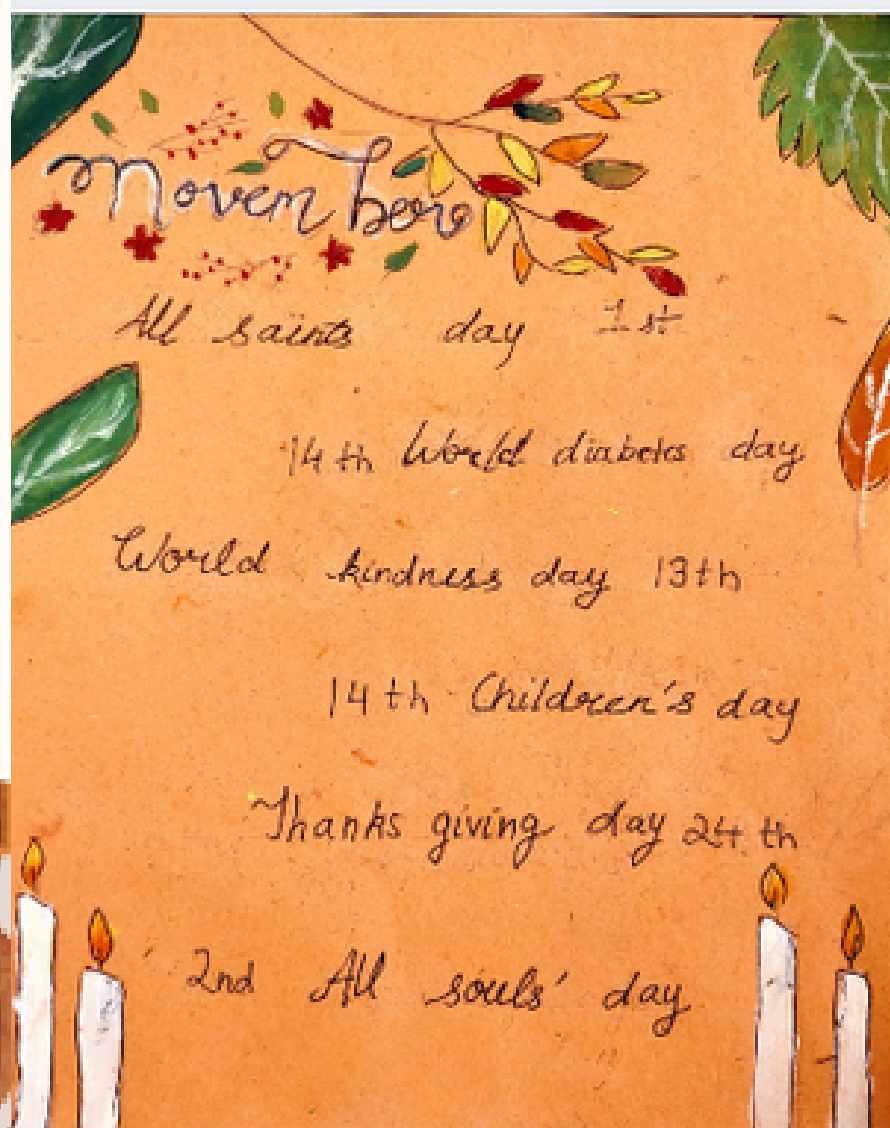 November
All saints day 1st
14th World diabetes day
World kindness day 13th
14th Children's day
Thanks giving day 24th
2nd All souls' day